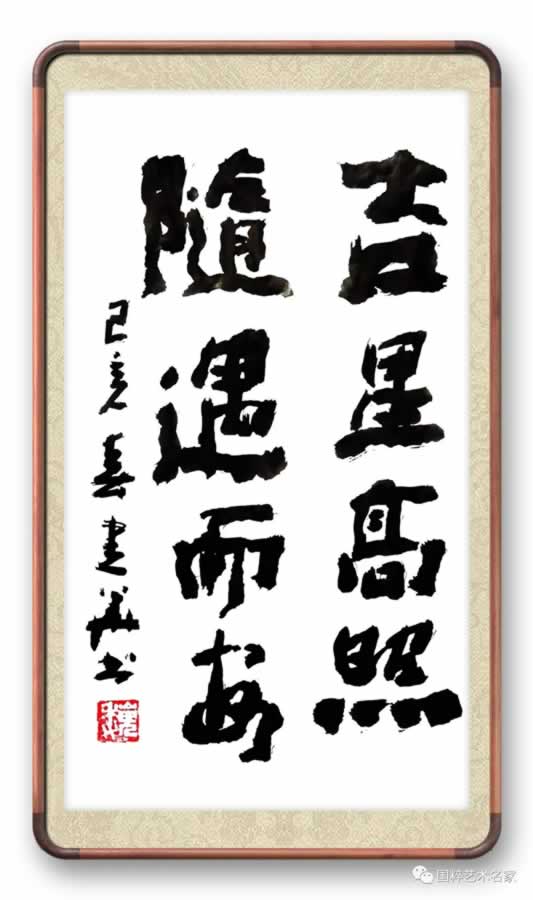 吉星高照
隨遇而安
己亥春建華书
魏
国粹艺术名家